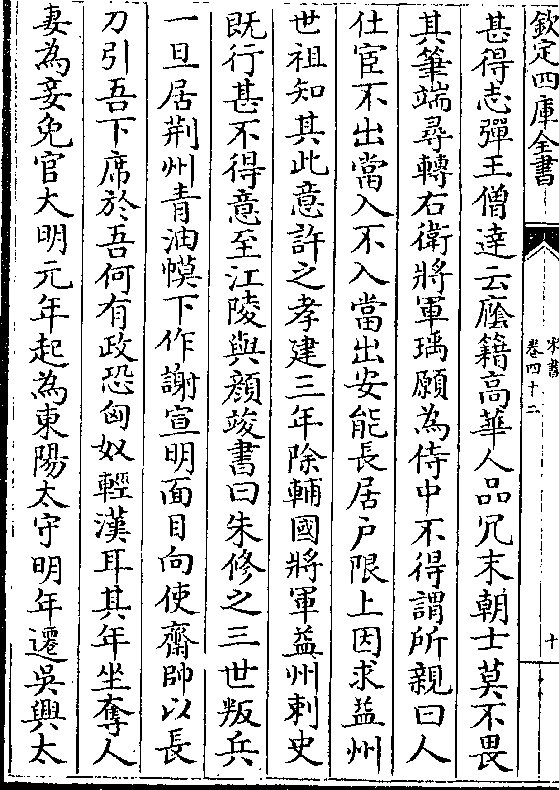 欽定四庫全書
宋書
卷四十二
十
甚得志彈王僧達云廕籍高華人品冗末朝士莫不畏
其筆端尋轉右衛將軍瑀願為侍中不得謂所親曰人
仕宦不出當入不入當出安能長居户限上因求益州
世祖知其此意許之孝建三年除輔國將軍益州刺史
既行甚不得意至江陵與顔竣書曰朱修之三世叛兵
一旦居荆州青油幙下作謝宣明面目向使齋帥以長
刀引吾下席於吾何有政恐匈奴輕漢耳其年坐奪人
妻為妾免官大明元年起為東陽太守明年遷吳興太